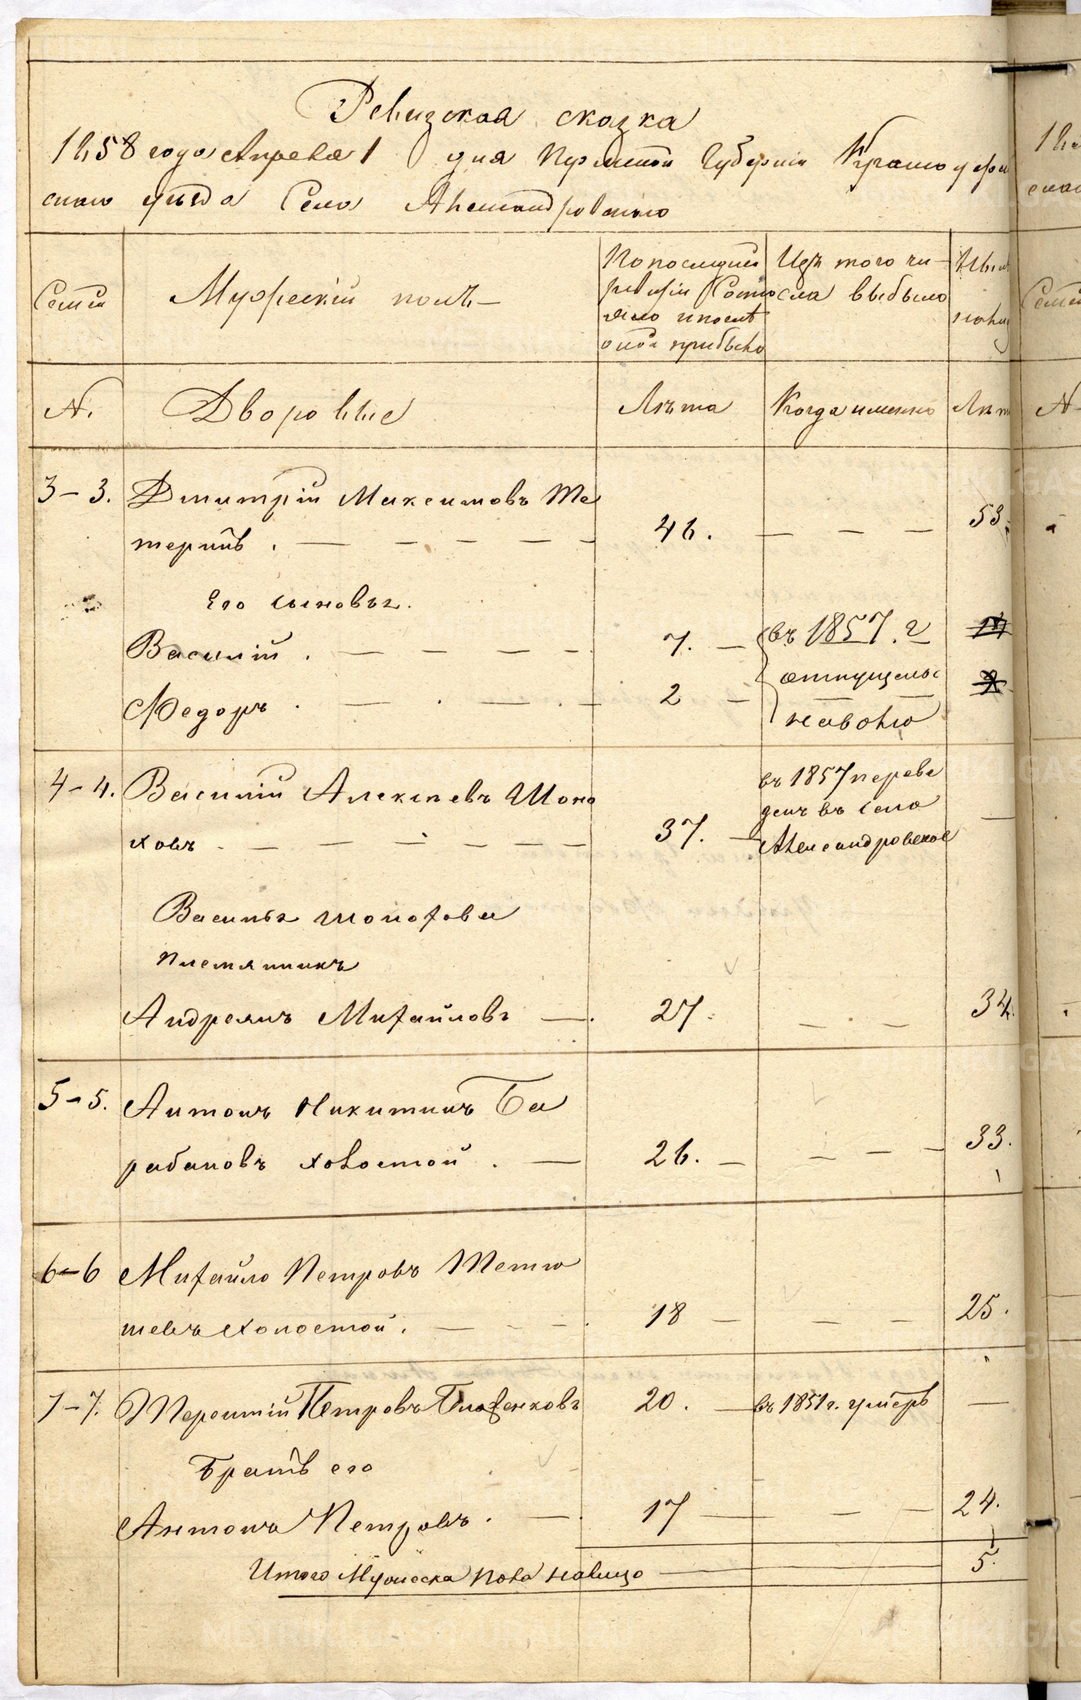 Ревизская сказка
1858 года Апреля 1 дня Пермской Губернии Красноуфим
скаго уѣзда Села Александровскаго
Семьи
Мужескій полъ
По последней
ревизіи состо
яло и послѣ
оной прибыло
Изъ того чи-
сла выбыло
Ныне
налиц
№.
Дворовые
Лѣта
Когда именно
Лѣт
3-3. Дмитрій Максимовъ Те
теринъ. 46. 53.
Его сыновья.
Василій. 7. въ 1857. г
отпущены
на волю
Ѳедоръ. 2
4-4. Василій Алексѣевъ Шоло
ховъ 37. въ 1857 переве
денъ въ село
Александровское
Василья Шолохова
племянникъ
Андреянъ Михайловъ 27. 34.
5-5. Антонъ Никитинъ Ба
рабановъ холостой. 26. 33.
6-6 Михайло Петровъ Тетю
шевъ холостой. 18 25.
7-7. Терентій Петровъ 20. въ 1851 г. умеръ
Братъ его
Антонъ Петровъ. 17 24.
Итого Мужеска пола налицо 5.
METRIKI.GASO